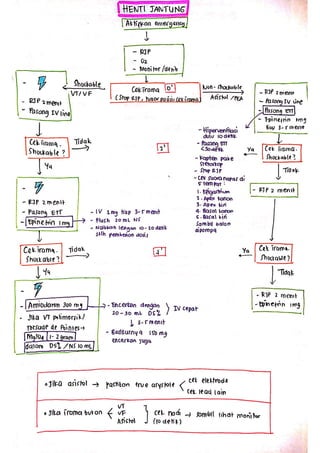 HENTI JANTUNG
Aktifkan emergency
- RJP
- O2
- Monitor/defib
Shockable
VT/VF
Cek irama 0'
(Stop RJP,
Non-shockable
Asistol/PEA
- RJP 2 menit
- Pasang IV line
- RJP 2 menit
- Pasang IV line
- Pasang ETT
- Epinefrin 1mg
tiap 3-5 menit
Cek irama.
Shockable?
Tidak
2'
- Hiperventilasi
dulu 10 detik
- Pasang ETT
<30 detik
- Stop RJP
- Cek suara napas di
5 tempat:
1. Epigastrium
2. Apex kanan
3. Apex kiri
4. Basal kanan
5. Basal kiri
Sambil balon
dipompa
Ya
Cek irama.
Shockable?
Ya
Tidak
- RJP 2 menit
- Pasang ETT
- Epinefrin 1mg
- IV 1 mg tiap 3-5 menit
- Flush 20 mL NS
- Naikkan lengan 10-20 detik
stlh pemberian dosis
- RJP 2 menit
Cek irama.
Shockable?
Tidak
4'
Ya
Cek irama.
Shockable?
Ya
Tidak
- Amiodaron 300 mg
- Jika VT polimorfik/
torsade de Pointes →
MgSO4 1-2 gram
dalam D5%/NS 10 mL
- Encerkan dengan
20-30 mL D5%
IV cepat
↓ 3-5 menit
- Encerkan juga
- RJP 2 menit
- Epinefrin 1mg
• Jika asistol → pastikan true asystole
cek elektroda
cek lead lain
• Jika irama
VT
VF
Asistol
cek nadi → sambil lihat monitor
(10 detik)